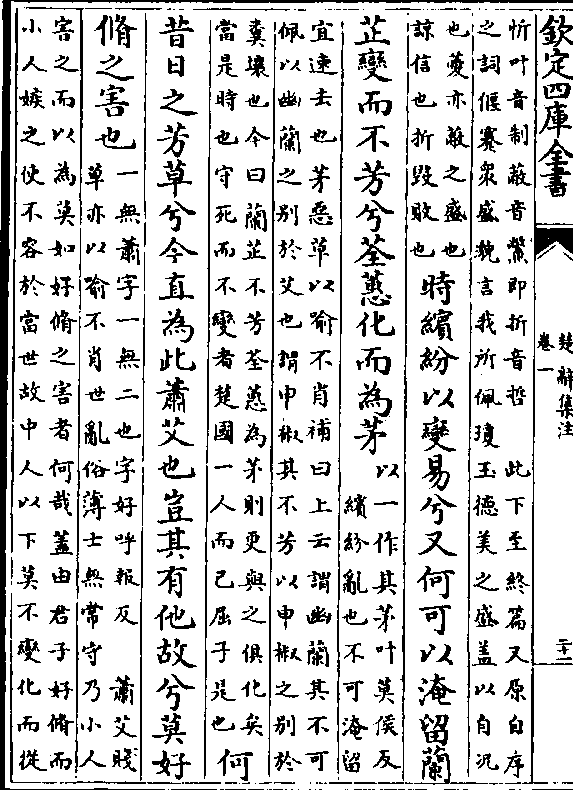 欽定四庫全書
楚辭集注
卷一
二十一
忻叶音制蔽音鷩即折音哲　此下至終篇又原自序
之詞偃蹇衆盛貌言我所佩瓊玉德美之盛蓋以自況
也薆亦蔽之盛也
諒信也折毀敗也
時繽紛以變易兮又何可以淹留蘭
芷變而不芳兮荃蕙化而為茅
以一作其茅叶莫侯反
繽紛亂也不可淹留
宜速去也茅惡草以喻不肖補曰上云謂幽蘭其不可
佩以幽蘭之别於艾也謂申椒其不芳以申椒之别於
糞壤也今曰蘭芷不芳荃蕙為茅則更與之俱化矣
當是時也守死而不變者楚國一人而已屈子是也
何
昔日之芳草兮今直為此蕭艾也豈其有他故兮莫好
脩之害也
一無蕭字一無二也字好呼報反　蕭艾賤
草亦以喻不肖世亂俗薄士無常守乃小人
害之而以為莫如好脩之害者何哉蓋由君子好脩而
小人嫉之使不容於當世故中人以下莫不變化而從